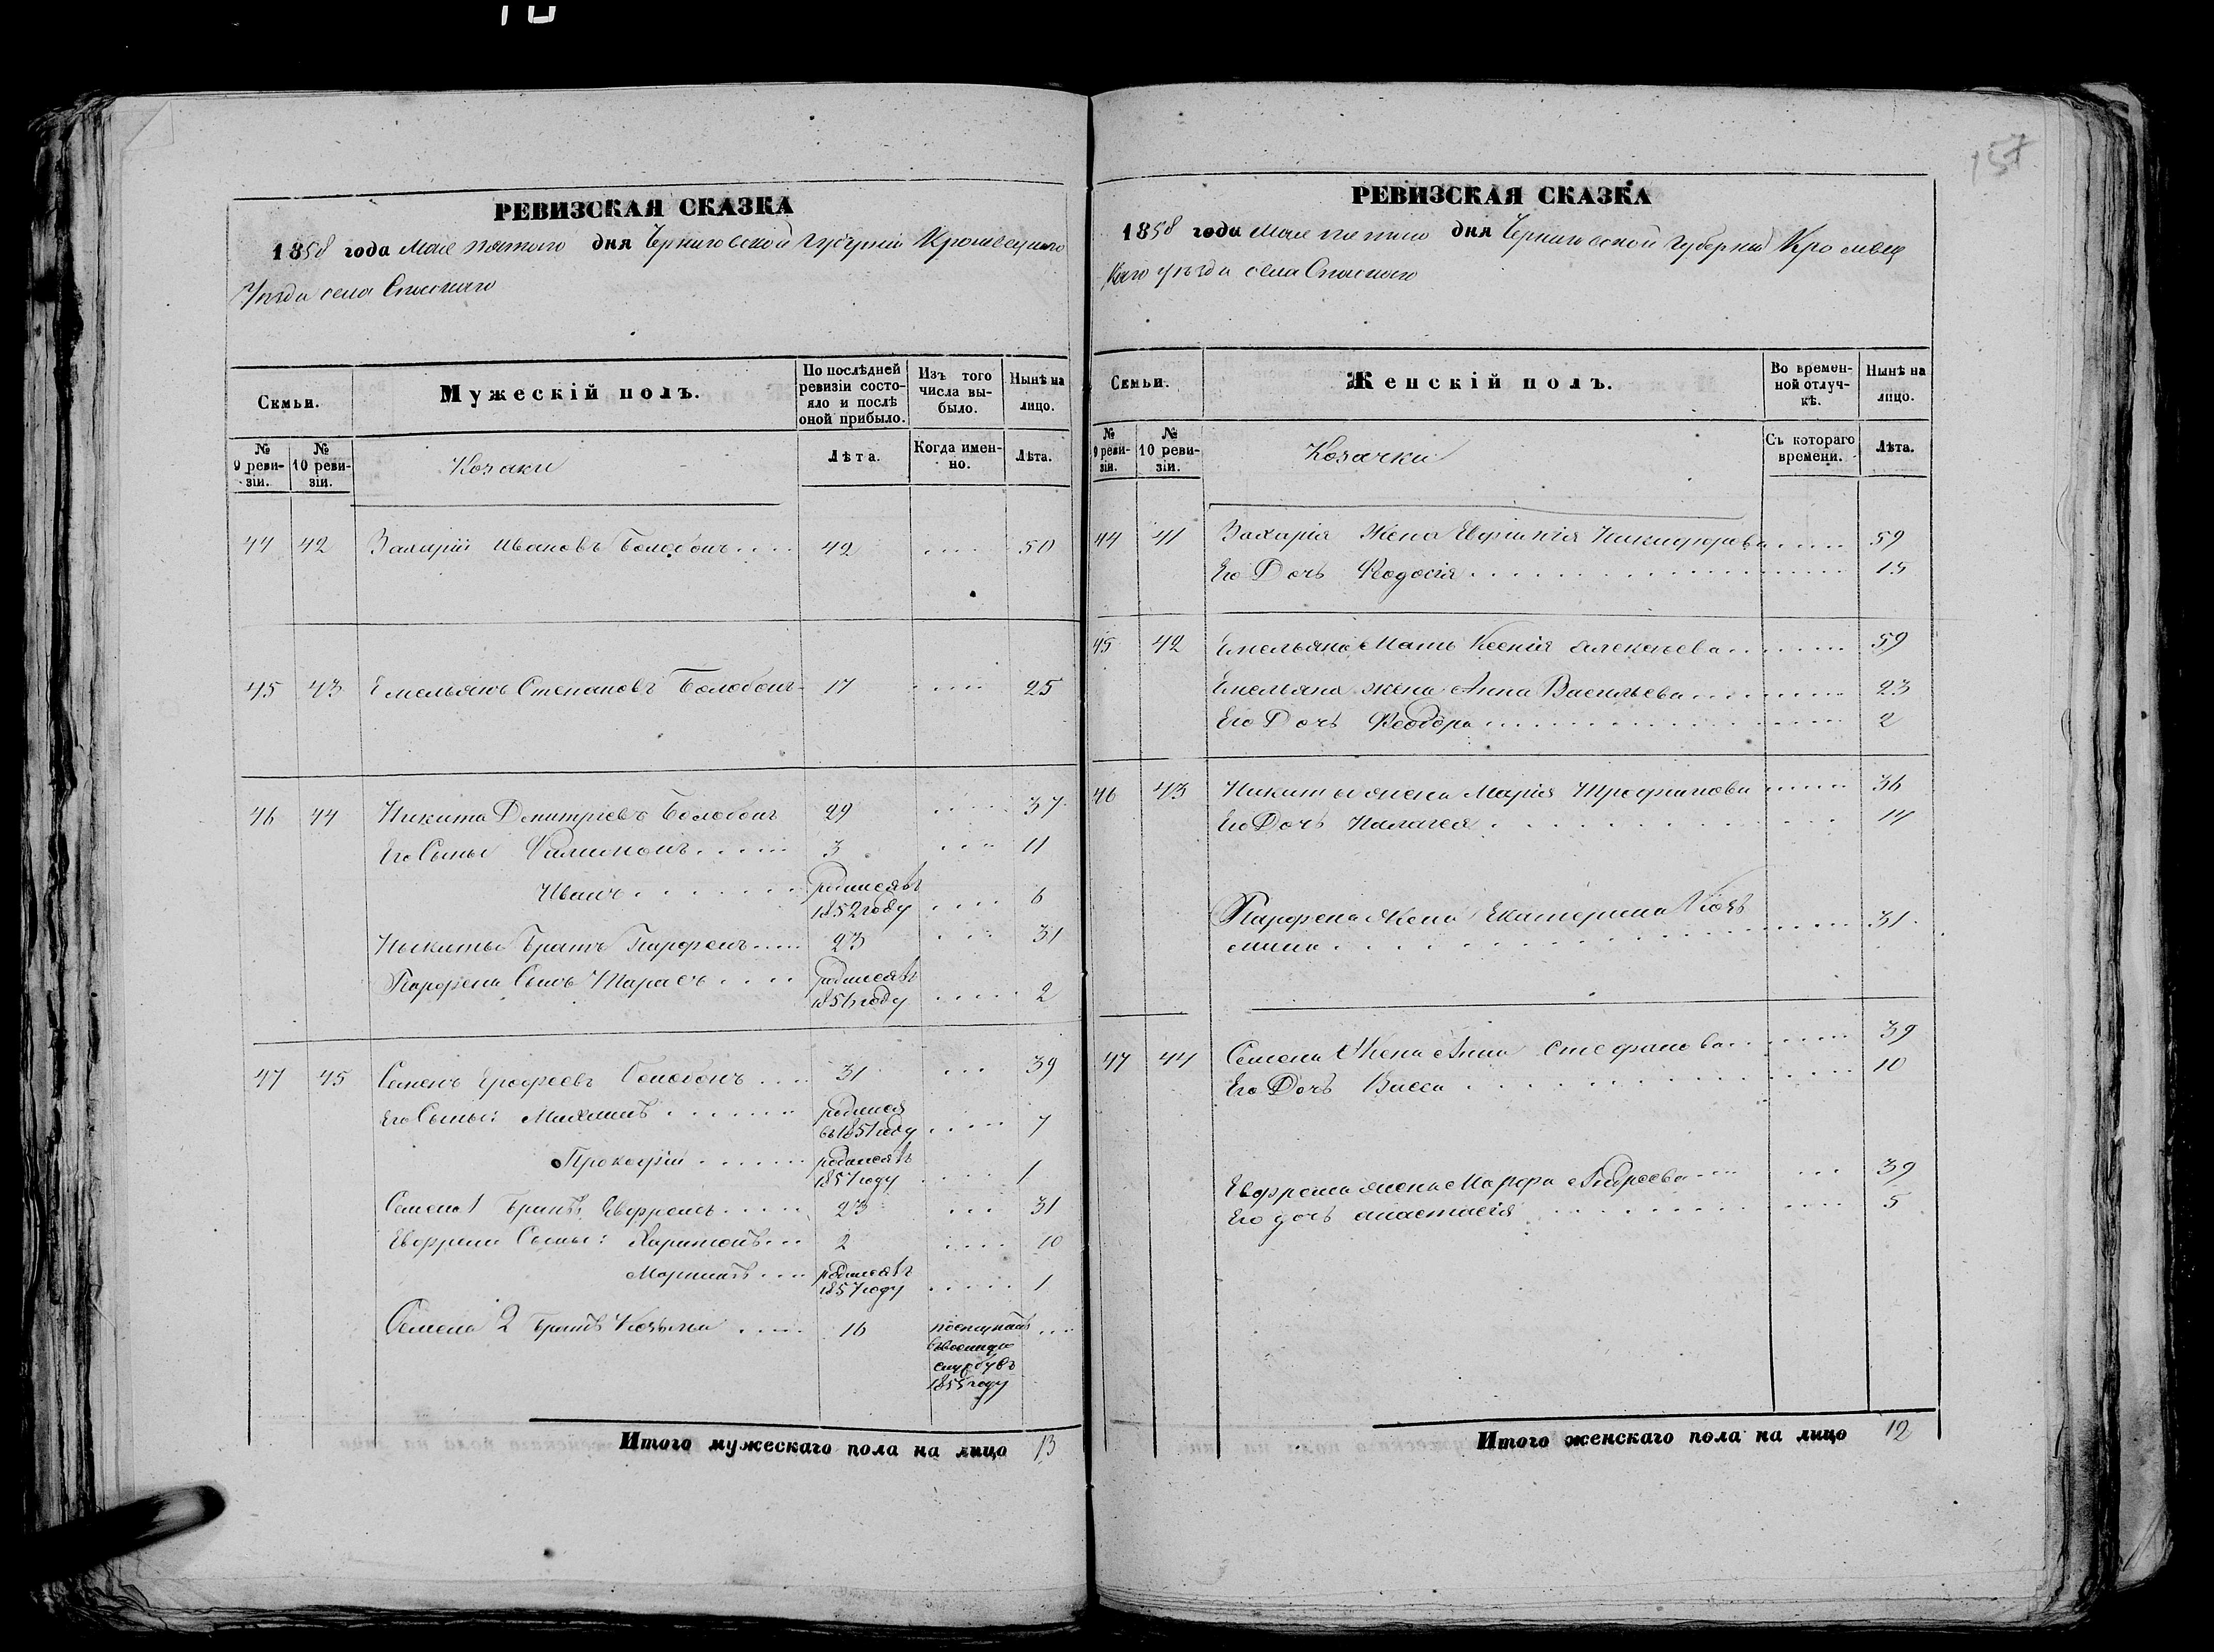 157
РЕВИЗСКАЯ СКАЗКА
1858 года Мая пятого дня Черниговской губерніи Кролевецкаго
Уѣзда села Спаскаго
Семьи.
Мужескій полъ.
По послѣдней ревизіи состояло и послѣ оной прибыло.
Изъ того числа выбыло.
Нынѣ на лицо.
№ 9 ревизіи.
№ 10 ревизіи.
Козаки
Лѣта.
Когда именно.
Лѣта.
44 42 Захарій Ивановъ Болобонъ 42 50
45 43 Емельянъ Степановъ Болобонъ 17 25
46 44 Никита Дмитріевъ Болобонъ 29 37
Его Сыны Филимонъ 3 11
Иванъ родился въ 1852 году 6
Никиты Братъ Парфенъ 23 31
Парфена Сынъ Тарасъ родился въ 1856 году 2
47 45 Семенъ Ерофеевъ Болобонъ 31 39
Его Сыны: Михаилъ родился въ 1851 году 7
Прокофій родился въ 1857 году 1
Семена 1 Братъ Евфремъ 23 31
Евфрема Сыны: Харитонъ 2 10
Мартинъ родился въ 1857 году 1
Семена 2 братъ Козьма 16 поступилъ въ военную службу въ 1855 году
Итого мужескаго пола на лицо 13
РЕВИЗСКАЯ СКАЗКА
1858 года Мая пятого дня Черниговской губерніи Кролевец
каго уѣзда села Спаскаго
Семьи.
Женскій полъ.
Во временной отлучкѣ.
Нынѣ на лицо.
№ 9 ревизіи.
№ 10 ревизіи.
Козачки
Съ котораго времени.
Лѣта.
44 41 Захарія Жена Евфимія Никифорова 59
Его Дочь Федосія 15
45 42 Емельяна Мать Ксенія Алексѣева 59
Емельяна жена Анна Васильева 23
Его Дочь Феодора 2
46 43 Никиты жена Марія Трофимова 36
Его Дочь Палагея 14
Парфена Жена Екатерина Козь
мина 31
47 44 Семена Жена Анна Стефанова 39
Его Дочь Васса 10
Евфрема жена Марфа Андреева 39
Его дочь Анастасія 5
Итого женскаго пола на лицо 12